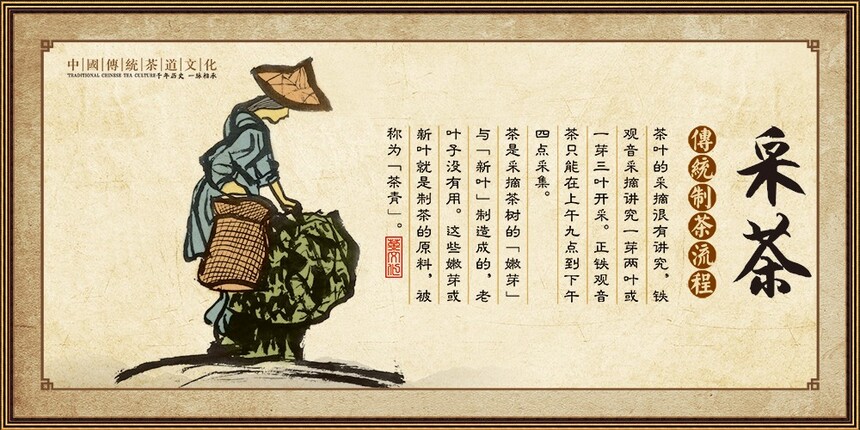 采茶
傳統制茶流程
茶叶的采摘很有讲究，铁
观音采摘讲究一芽两叶或
一芽三叶开采。正铁观音
茶只能在上午九点到下午
四点采集。
茶是采摘茶树的「嫩芽」
与「新叶」制造成的，老
叶子没有用。这些嫩芽或
新叶就是制茶的原料，被
称为「茶青」。
中國傳統茶道文化
TRADITIONAL CHINESE TEA CULTURE千年历史 一脉相承